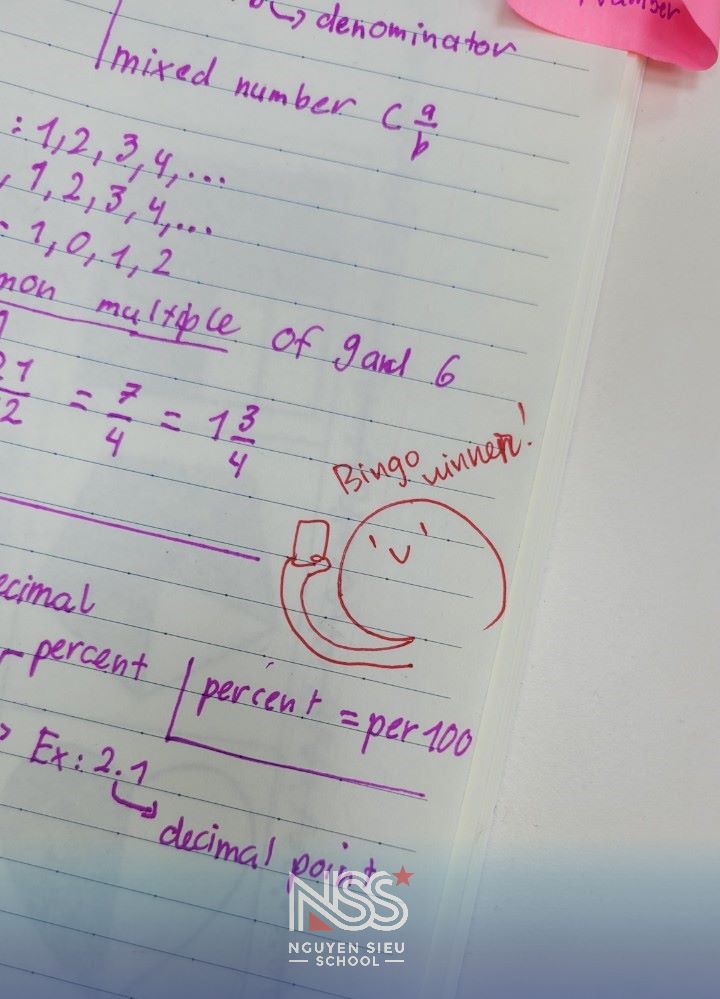 denominator
mixed number c a/b
: 1, 2, 3, 4, ...
, 1, 2, 3, 4, ...
- 1, 0, 1, 2
mon multiple of 9 and 6
21/12 = 7/4 = 1 3/4
Bingo winner!
ecimal
percent
percent = per 100
Ex: 2.1
decimal point
NSS
NGUYEN SIEU
SCHOOL